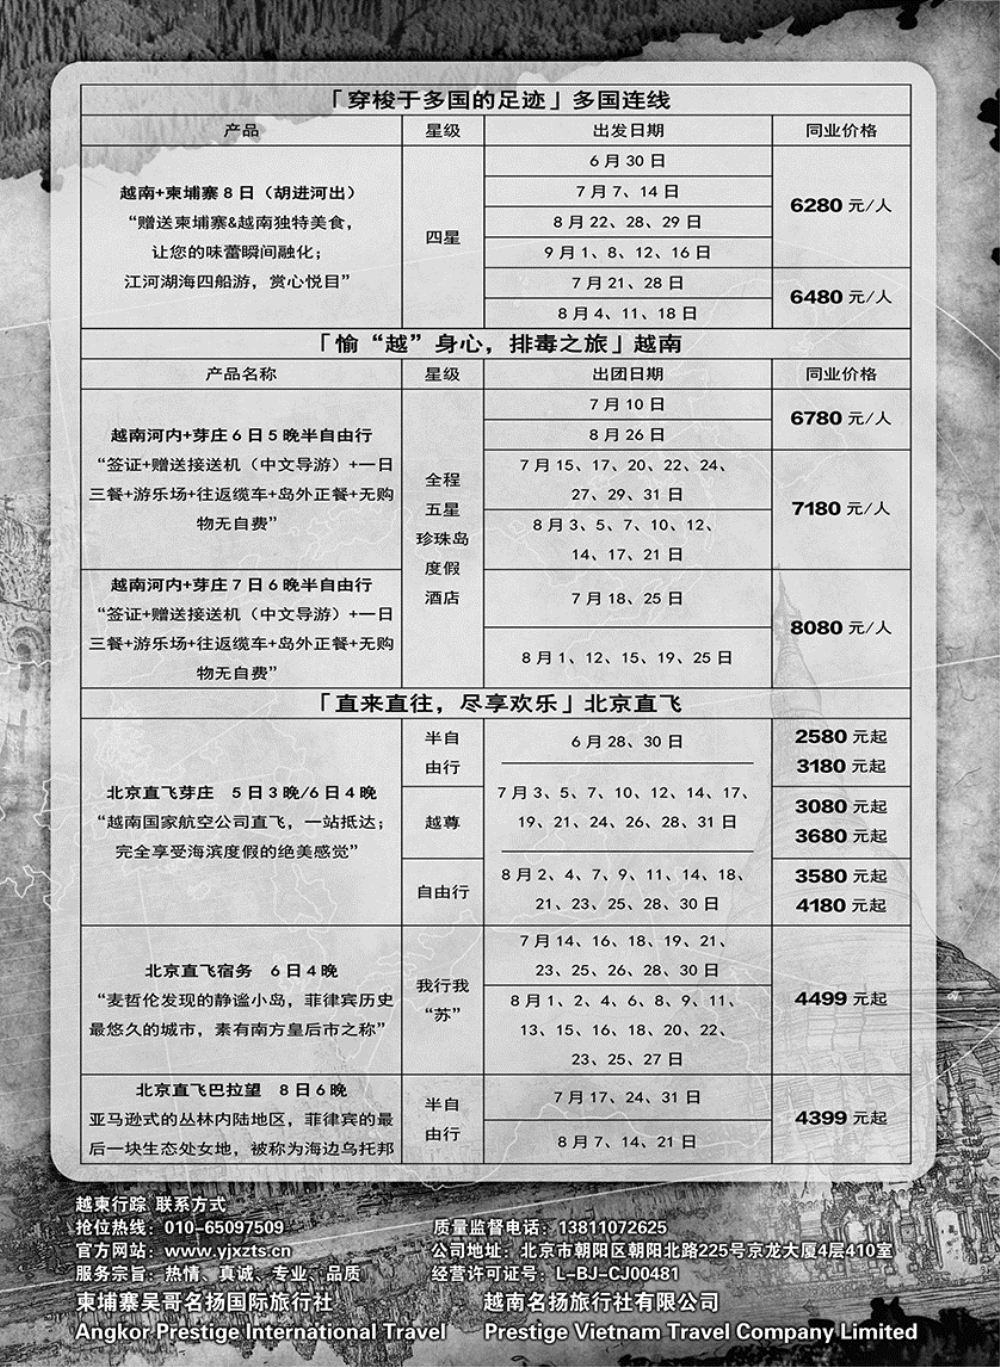 「穿梭于多国的足迹」多国连线
产品 星级 出发日期 同业价格
越南+柬埔寨 8 日（胡进河出）
“赠送柬埔寨&越南独特美食，
让您的味蕾瞬间融化；
江河湖海四船游，赏心悦目”
四星
6 月 30 日
7 月 7、14 日
8 月 22、28、29 日
9 月 1、8、12、16 日
6280 元/人
7 月 21、28 日
8 月 4、11、18 日
6480 元/人
「愉“越”身心，排毒之旅」越南
产品名称 星级 出团日期 同业价格
越南河内+芽庄 6 日 5 晚半自由行
“签证+赠送接送机（中文导游）+一日
三餐+游乐场+往返缆车+岛外正餐+无购
物无自费”
全程
五星
珍珠岛
度假
酒店
7 月 10 日
8 月 26 日
6780 元/人
7 月 15、17、20、22、24、
27、29、31 日
8 月 3、5、7、10、12、
14、17、21 日
7180 元/人
越南河内+芽庄 7 日 6 晚半自由行
“签证+赠送接送机（中文导游）+一日
三餐+游乐场+往返缆车+岛外正餐+无购
物无自费”
7 月 18、25 日
8 月 1、12、15、19、25 日
8080 元/人
「直来直往，尽享欢乐」北京直飞
北京直飞芽庄 5 日 3 晚/6 日 4 晚
“越南国家航空公司直飞，一站抵达；
完全享受海滨度假的绝美感觉”
半自
由行
越尊
自由行
6 月 28、30 日
7 月 3、5、7、10、12、14、17、
19、21、24、26、28、31 日
8 月 2、4、7、9、11、14、18、
21、23、25、28、30 日
2580 元起
3180 元起
3080 元起
3680 元起
3580 元起
4180 元起
北京直飞宿务 6 日 4 晚
“麦哲伦发现的静谧小岛，菲律宾历史
最悠久的城市，素有南方皇后市之称”
我行我
“苏”
7 月 14、16、18、19、21、
23、25、26、28、30 日
8 月 1、2、4、6、8、9、11、
13、15、16、18、20、22、
23、25、27 日
4499 元起
北京直飞巴拉望 8 日 6 晚
亚马逊式的丛林内陆地区，菲律宾的最
后一块生态处女地，被称为海边乌托邦
半自
由行
7 月 17、24、31 日
8 月 7、14、21 日
4399 元起
越柬行踪 联系方式
抢位热线：010-65097509 质量监督电话：13811072625
官方网站：www.yjxzts.cn 公司地址：北京市朝阳区朝阳北路225号京龙大厦4层410室
服务宗旨：热情、真诚、专业、品质 经营许可证号：L-BJ-CJ00481
柬埔寨吴哥名扬国际旅行社 越南名扬旅行社有限公司
Angkor Prestige International Travel Prestige Vietnam Travel Company Limited